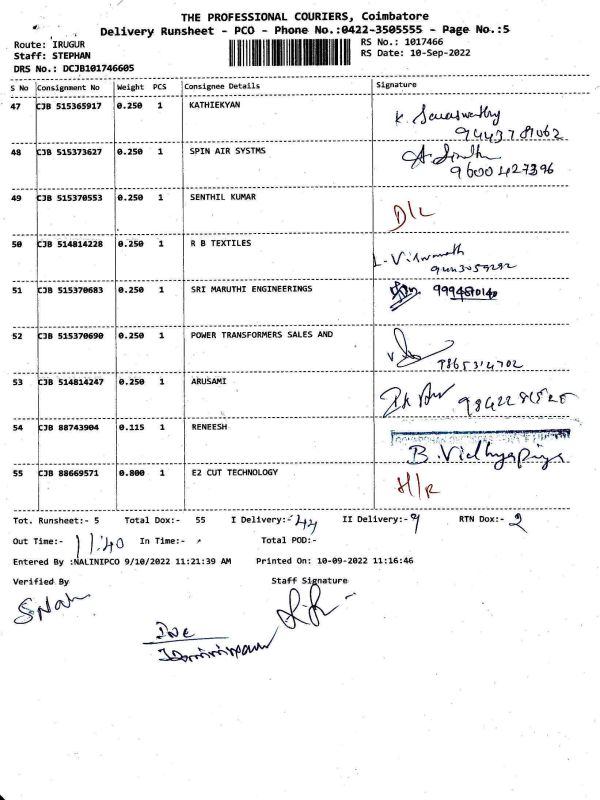 THE PROFESSIONAL COURIERS, Coimbatore
Delivery Runsheet - PCO - Phone No.:0422-3505555 - Page No.:5
Route: IRUGUR
RS No.: 1017466
Staff: STEPHAN
RS Date: 10-Sep-2022
DRS No.: DCJB101746605
S No Consignment No Weight PCS Consignee Details Signature
47 CJB 515365917 0.250 1 KATHIEKYAN
9443781062
48 CJB 515373627 0.250 1 SPIN AIR SYSTMS
9600427396
49 CJB 515370553 0.250 1 SENTHIL KUMAR
D/L
50 CJB 514814228 0.250 1 R B TEXTILES
L. Viswanath
9443059292
51 CJB 515370683 0.250 1 SRI MARUTHI ENGINEERINGS
52 CJB 515370690 0.250 1 POWER TRANSFORMERS SALES AND
53 CJB 514814247 0.250 1 ARUSAMI
54 CJB 88743904 0.115 1 RENEESH
B. Vidhyapiya
55 CJB 88669571 0.800 1 E2 CUT TECHNOLOGY
Tot. Runsheet:- 5 Total Dox:- 55 I Delivery:- 44 II Delivery:- 9 RTN Dox:- 2
Out Time:- 11:40 In Time:- Total POD:-
Entered By :NALINIPCO 9/10/2022 11:21:39 AM Printed On: 10-09-2022 11:16:46
Verified By Staff Signature